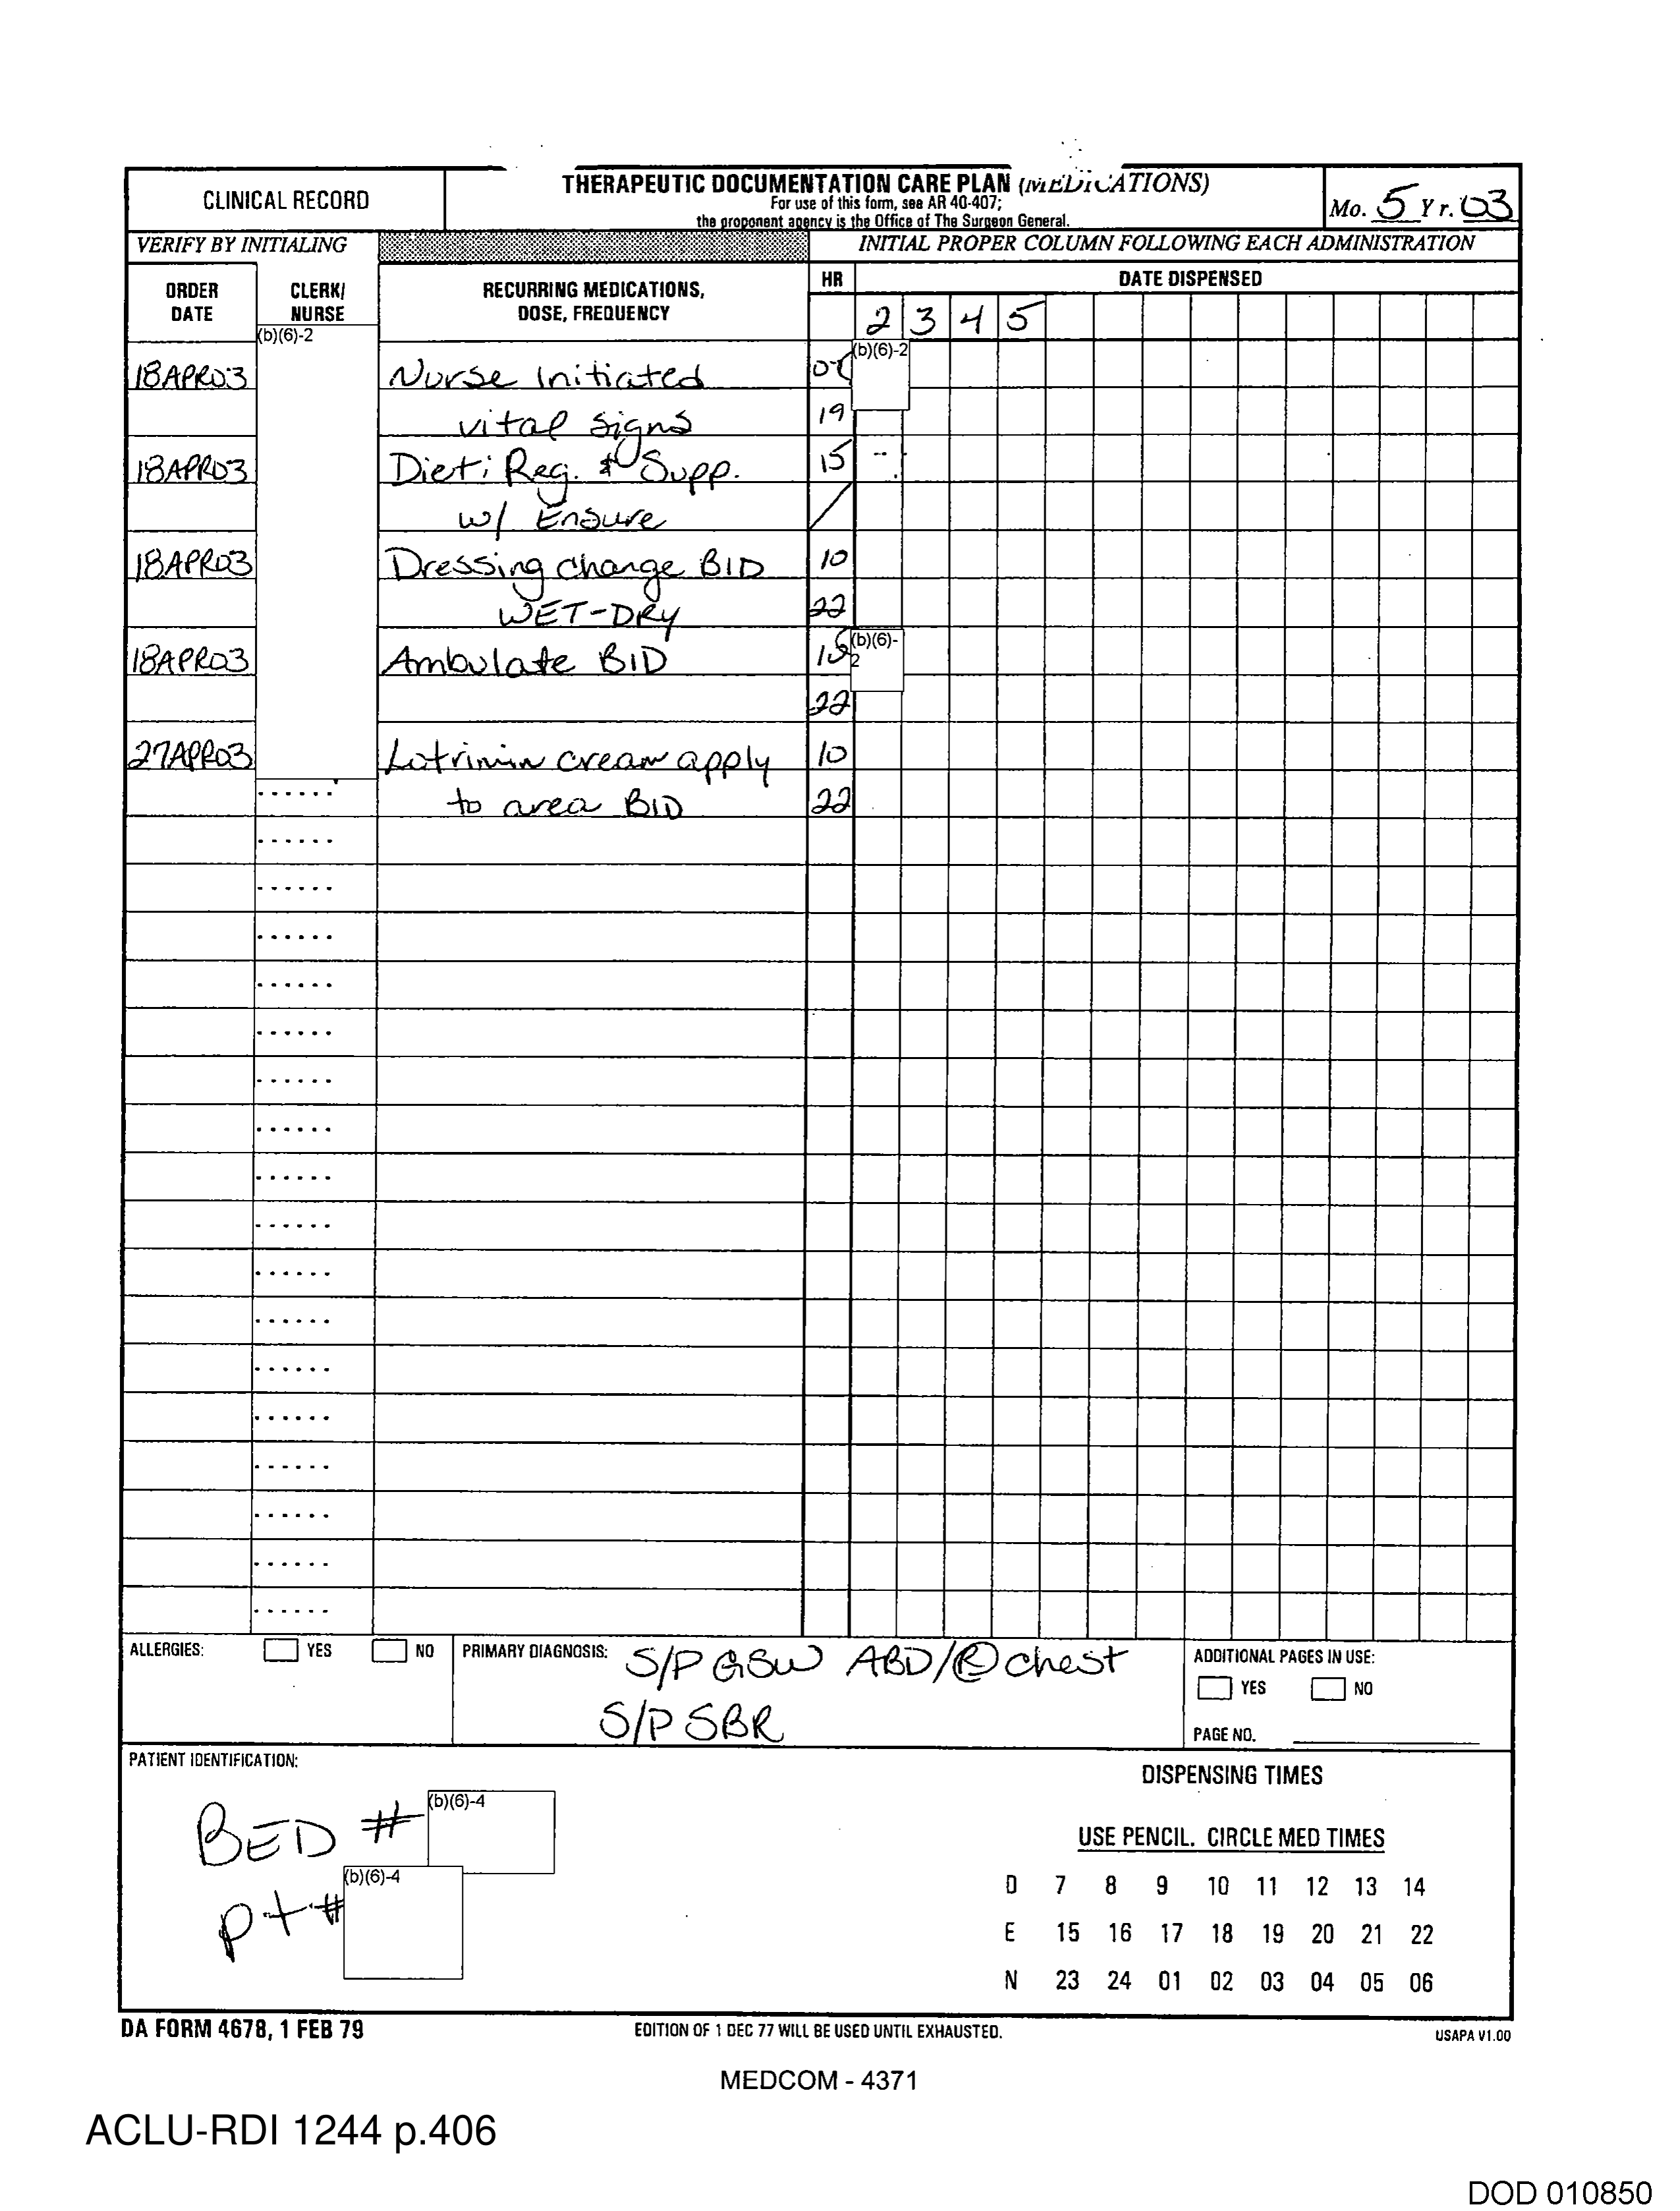 CLINICAL RECORD
THERAPEUTIC DOCUMENTATION CARE PLAN (MEDICATIONS)
For use of this form, see AR 40-407;
the proponent agency is the Office of The Surgeon General.
Mo. 5 Yr. 03
VERIFY BY INITIALING
INITIAL PROPER COLUMN FOLLOWING EACH ADMINISTRATION
ORDER DATE
CLERK/ NURSE
RECURRING MEDICATIONS, DOSE, FREQUENCY
HR
DATE DISPENSED
2 3 4 5
(b)(6)-2
(b)(6)-2
18APR03 Nurse Initiated
vital signs 19
18APR03 Diet: Reg. & Supp. 15
w/ Ensure
18APR03 Dressing change BID 10
WET-DRY 22
18APR03 Ambulate BID (b)(6)-2
22
27APR03 Lotrimin cream apply 10
to area BID 22
ALLERGIES: YES NO
PRIMARY DIAGNOSIS: S/P GSW ABD/Ⓡ chest
S/P SBR
ADDITIONAL PAGES IN USE:
YES NO
PAGE NO.
PATIENT IDENTIFICATION:
BED # (b)(6)-4
pt # (b)(6)-4
DISPENSING TIMES
USE PENCIL. CIRCLE MED TIMES
D 7 8 9 10 11 12 13 14
E 15 16 17 18 19 20 21 22
N 23 24 01 02 03 04 05 06
DA FORM 4678, 1 FEB 79
EDITION OF 1 DEC 77 WILL BE USED UNTIL EXHAUSTED.
USAPA V1.00
MEDCOM - 4371
ACLU-RDI 1244 p.406
DOD 010850